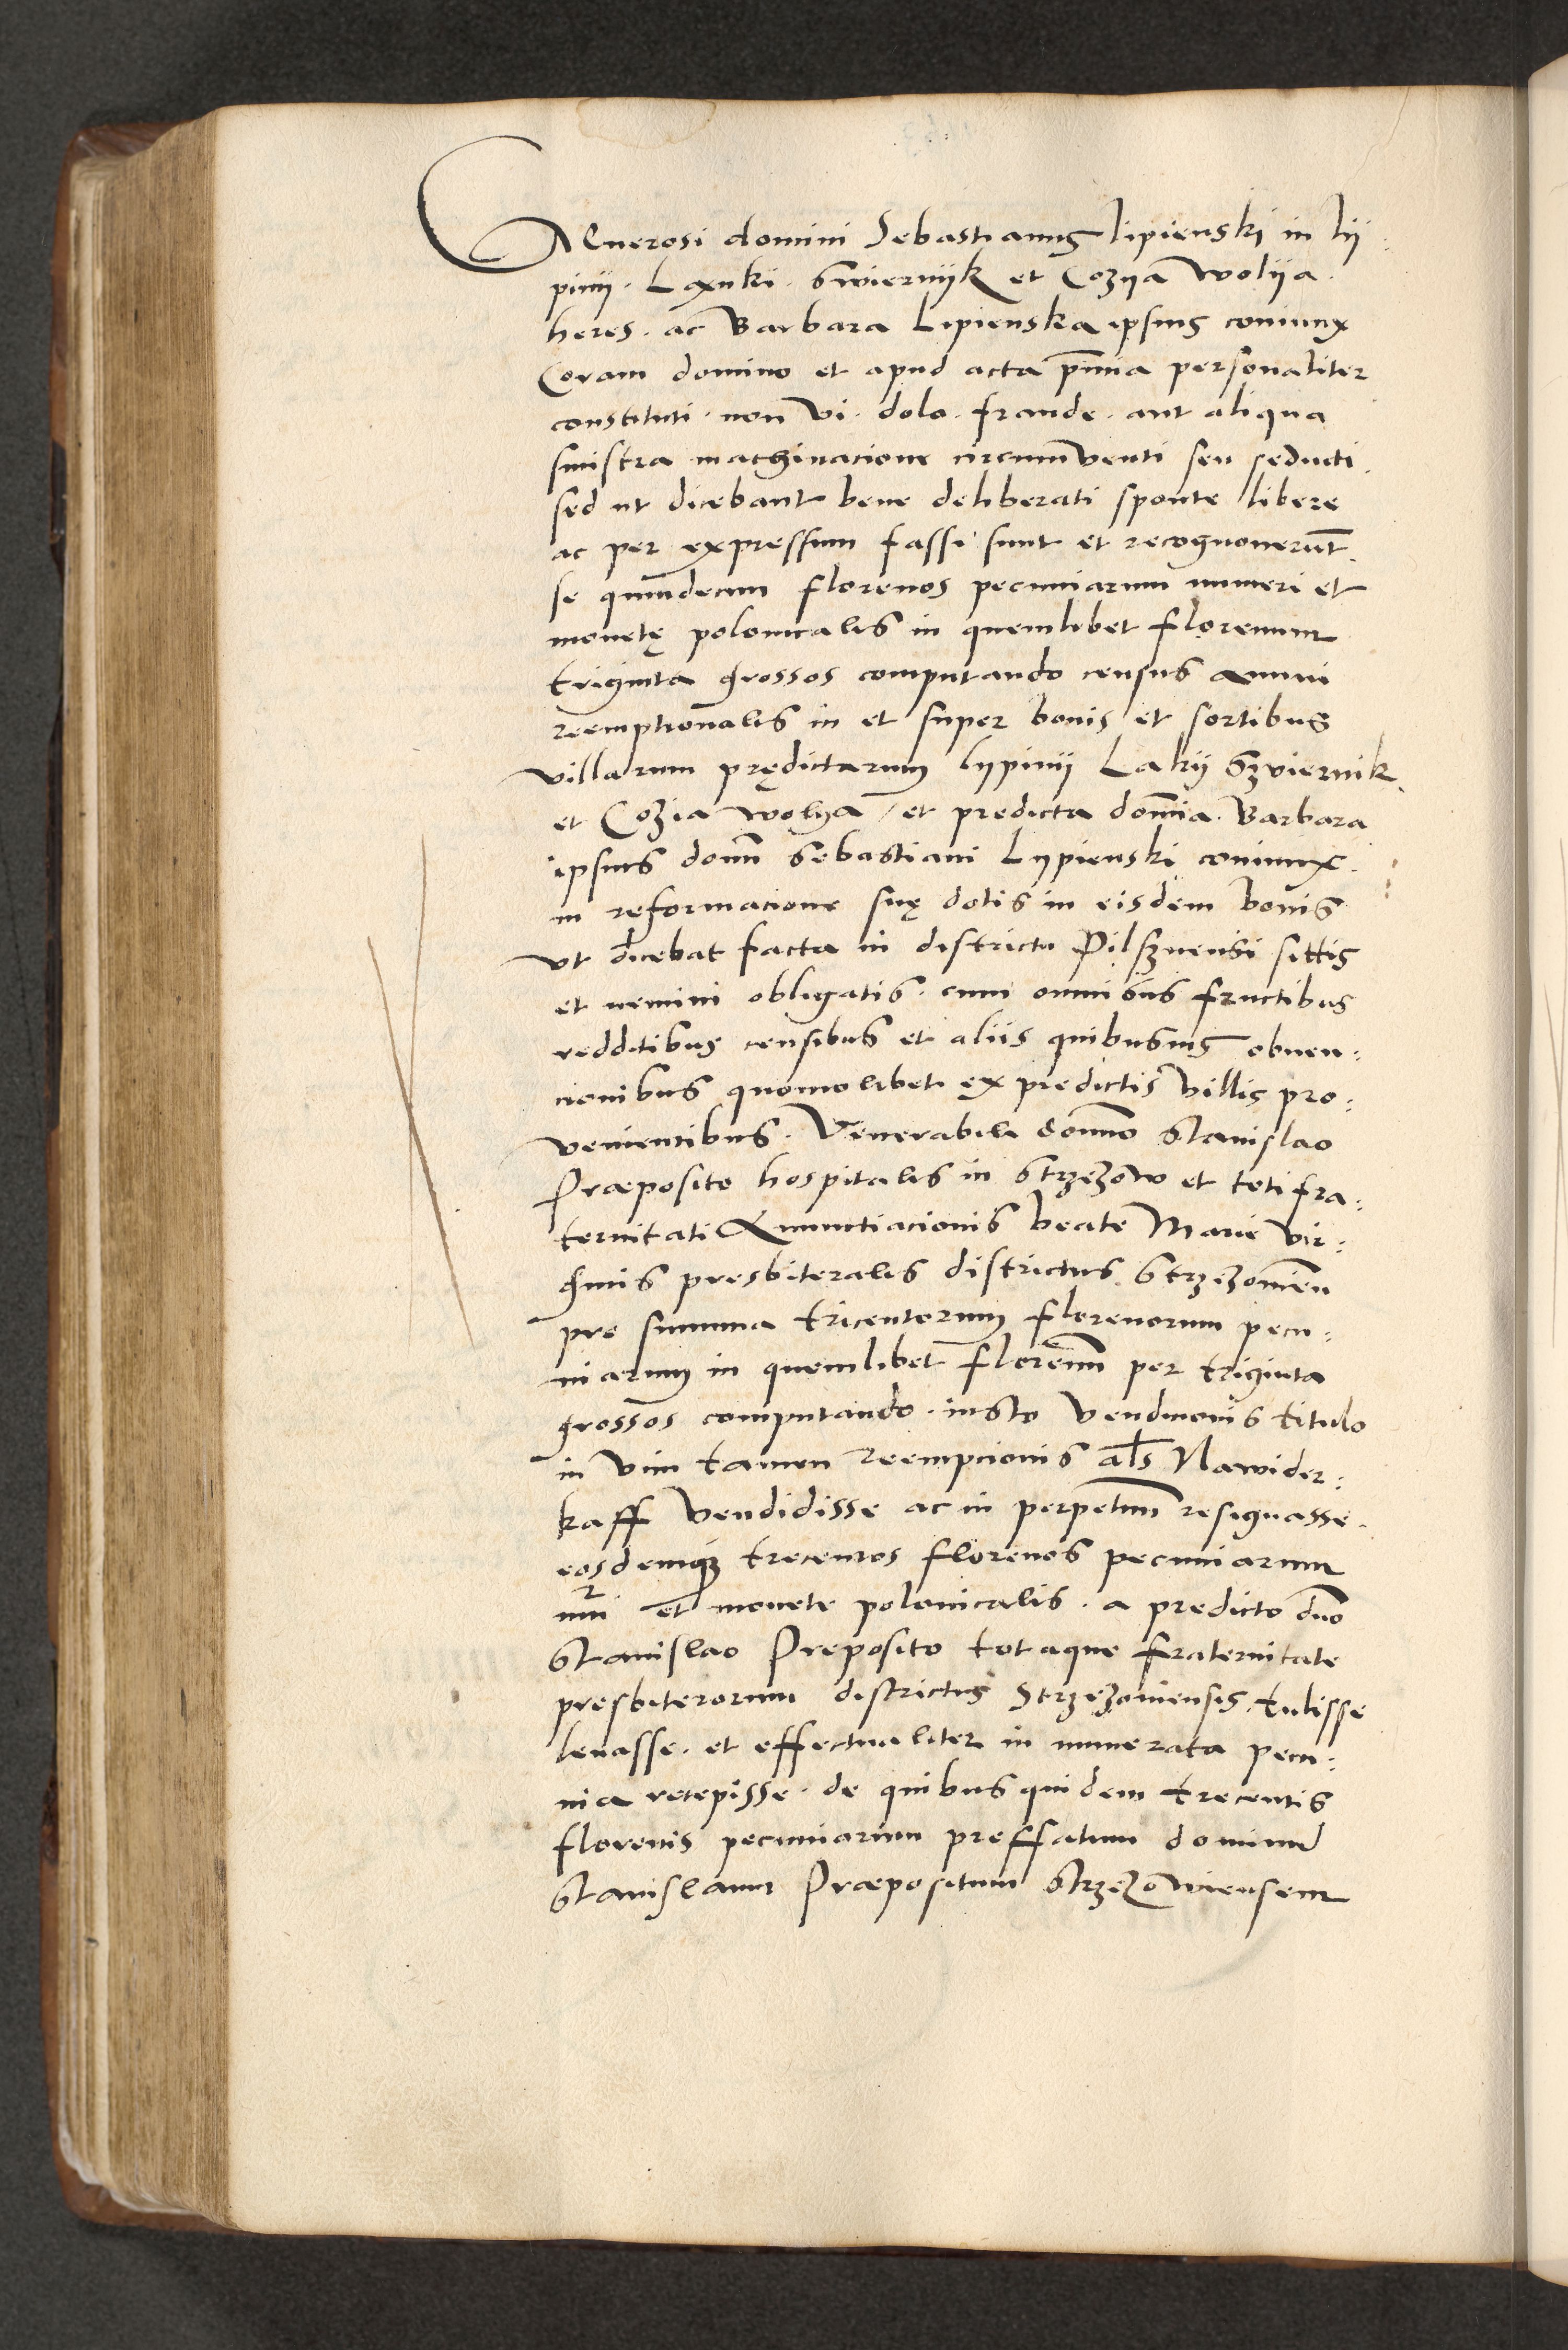 GEnerosi domini Sebastianus Lipienski in lij:
pinij. Laxuki. Swiernijk et Cozya Wolija.
heres. ac Barbara Lipienska ipsius coniunx
Coram domino et apud acta p̄ntia personaliter
constituti. non vi. dolo. fraude. aut aliqua
sinistra machinacione circumventi seu seducti.
sed ut dicebant bene deliberati sponte libere
ac per expressum fassi sunt et recognoverūt.
se quindecim florenos pecuniarum numeri et
monetę polonicalis in quemlibet florenum
triginta grossos computando census annui
reemptionalis in et super bonis et sortibus
villarum prędictarum lypinij Lakij Szviernik
et Cozia wolya / et predicta domīa. Barbara
ipsius domī Sebastiani Lypienski coniunx.
in reformacione suę dotis in eisdem bonis
ut dicebat facta in districtu Pilsznensi sittis
et nemini obligatis. cum omnibus fructibus
redditibus censibus et aliis quibusvis obven:
cionibus quomolibet ex predictis villis pro:
venientibus. Venerabili domīo Stanislao
Præposito hospitalis in Strzezow et toti fra:
ternitati Anunctiacionis beate Marie vir:
ginis presbiteralis districtus Strzezoviēn
pro summa tricentorum florenorum pecu:
niarum in quemlibet florēnū per triginta
grossos computando. iusto vendicionis titulo
in vim tamen reempcionis al̄s Nawider:
kaff vendidisse ac in perpetuum resignasse.
eosdemq trecentos florenos pecuniarum
nr̄i et monete polonicalis. a predicto dn̄o
Stanislao Preposito totaque fraternitate
presbiterorum districtus Strzezoviensis tulisse
levasse. et effectualiter in numerata pecu:
nia recepisse. de quibus quidem trecentis
florenis pecuniarum preffatum dominū
Stanislaum Præpositum Strzezowiensem